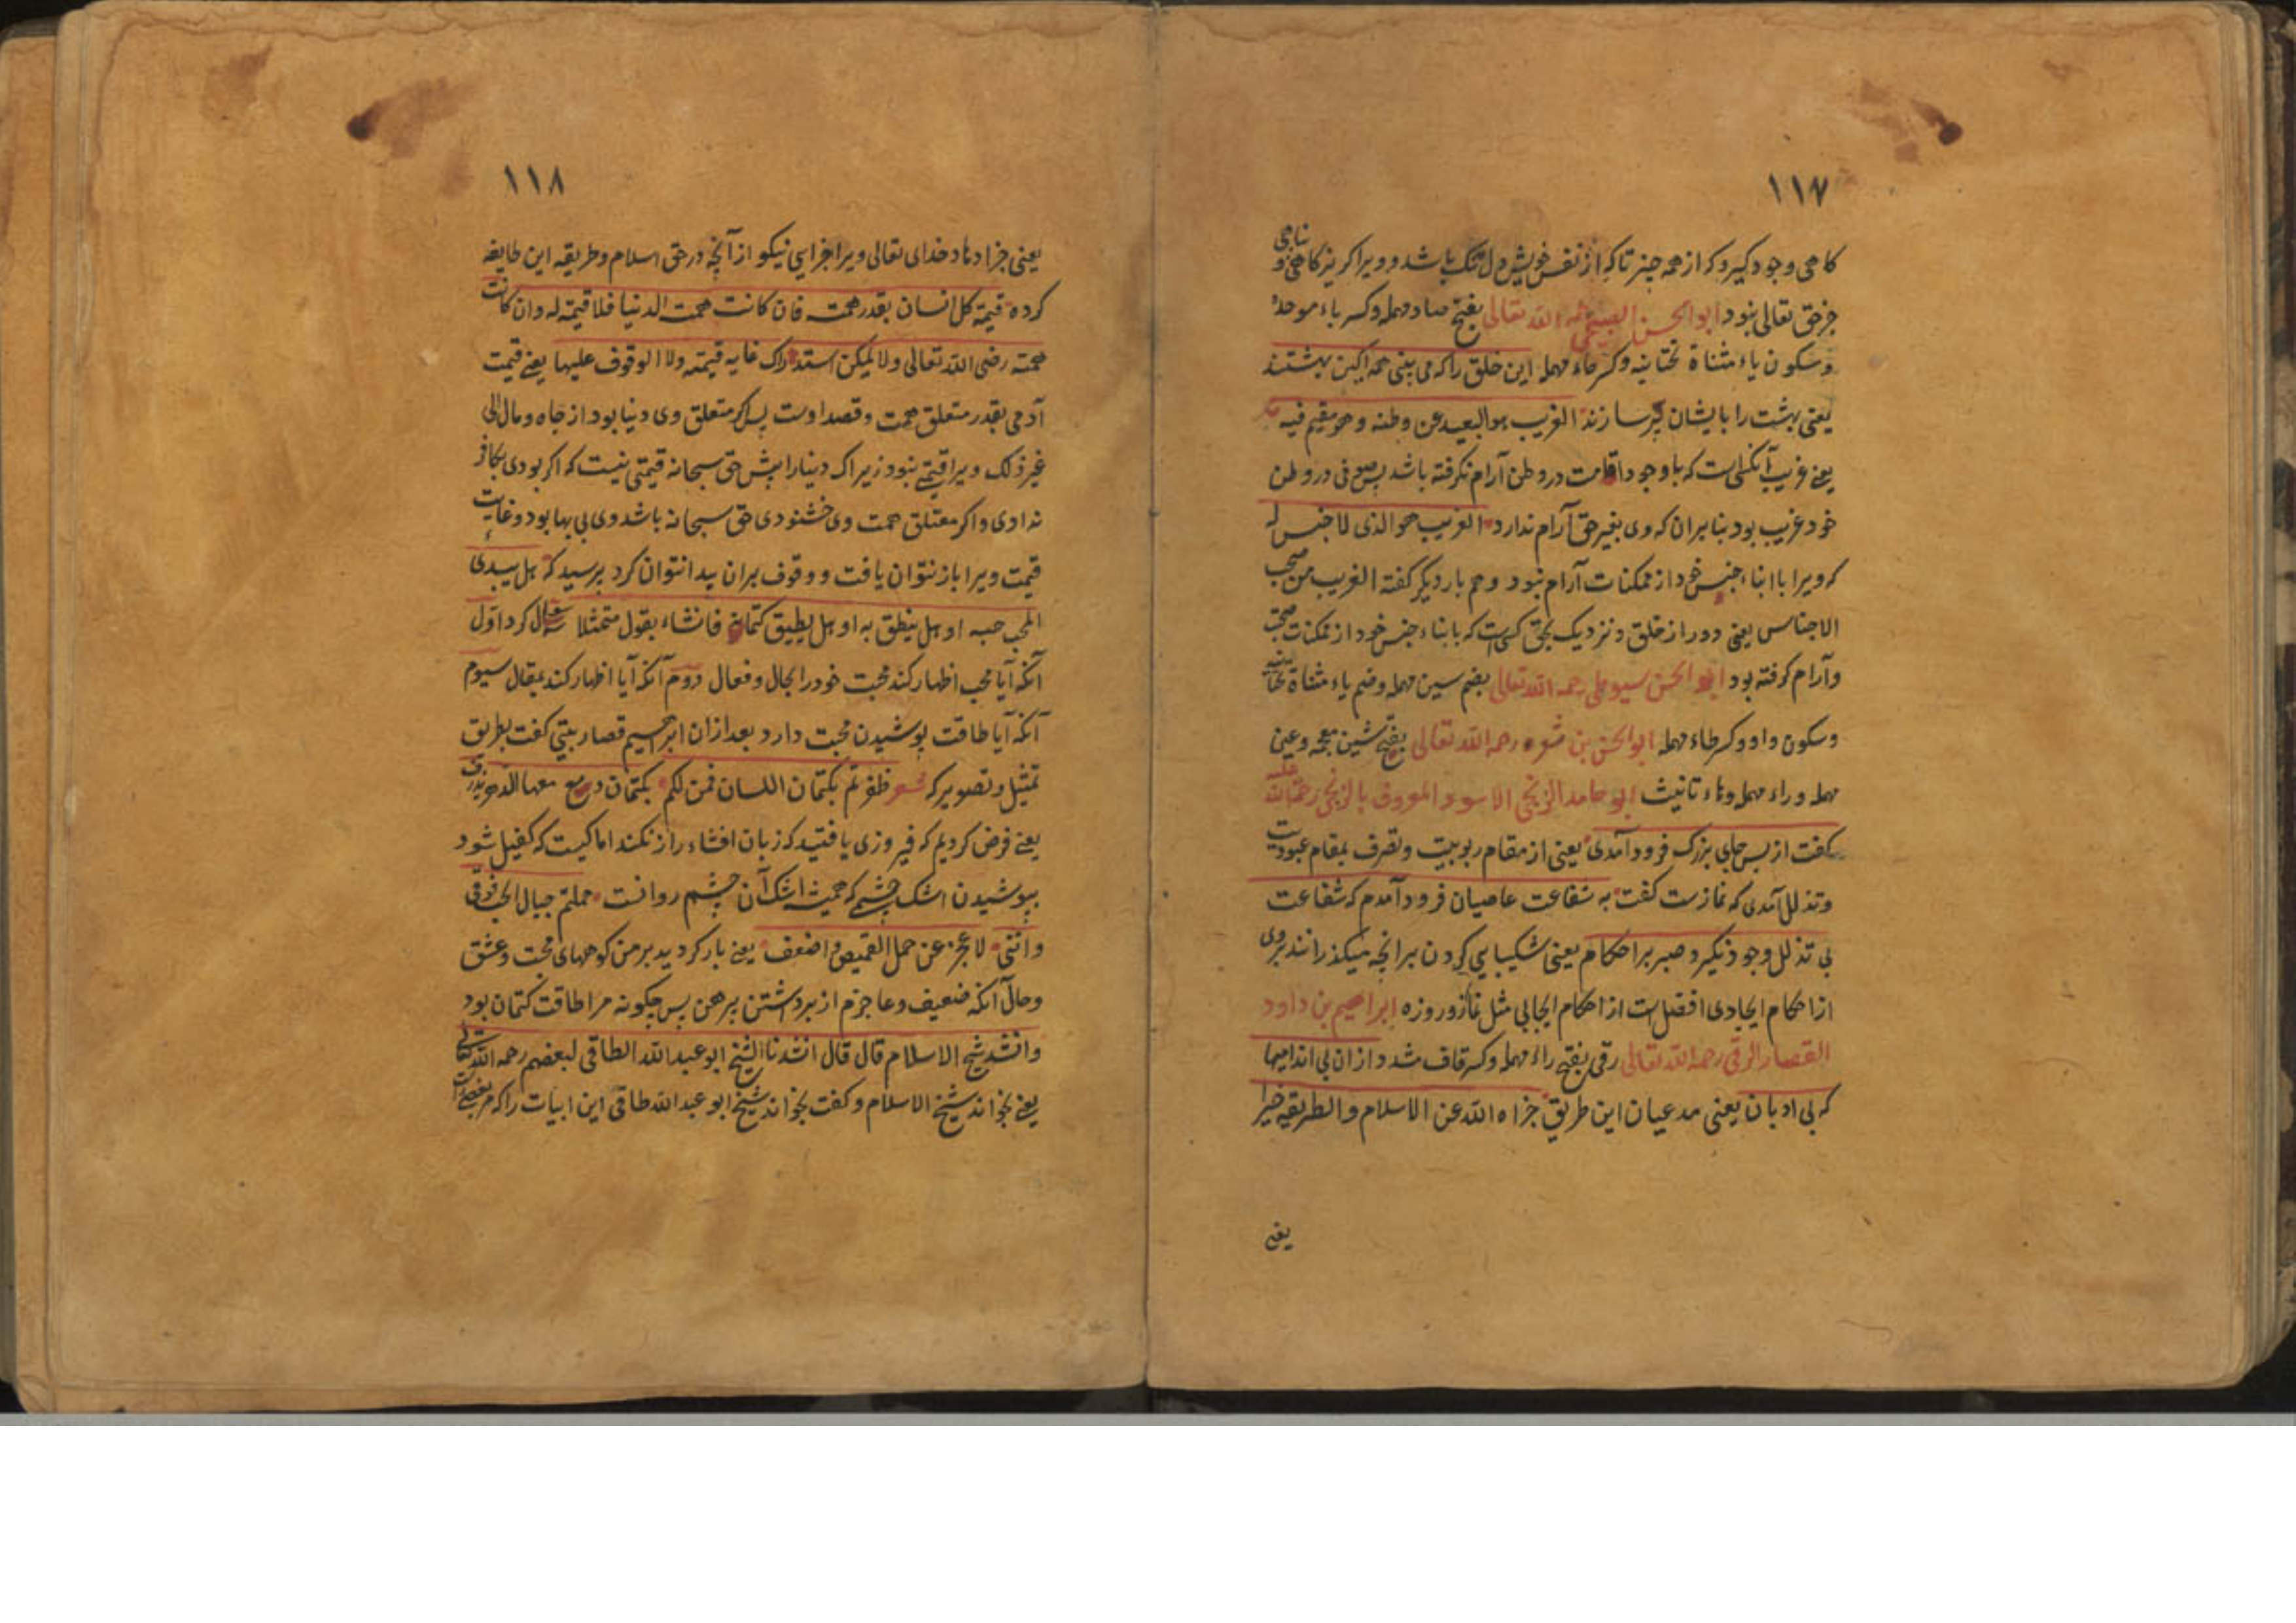 ١١٧
کاهی وجود کیرد که از همه چیز تا که از نفس خویش دل تنک باشد و ویرا کریزکاهی و
جز حق تعالی نبود ابوالحسن الصبیحی رحمه الله تعالی بفتح صاد مهمله وکسر باء موحده
وسکون یاء مثناة تحتانیه وکسر حاء مهمله این خلق را که می بینی همه اکین بهشتند
یعنی بهشت را بایشان پر سازند الغریب هوالبعید عن وطنه وهو مقیم فیه
یعنے غریب آنکس است که با وجود اقامت در وطن آرام نکرفته باشد پس صوفی در وطن
خود غریب بود بنابران که وی بغیر حق آرام ندارد الغریب هوالذی لا جنس له
که ویرا با ابناء جنس خود از ممکنات آرام نبود وهم بار دیکر کفته الغریب من صحب
الاجناس یعنی دور از خلق ونزدیک بحق کسی است که با ابناء جنس خود از ممکنات صحبت
وآرام کرفته بود ابوالحسن سیوطی رحمه الله تعالی بضم سین مهمله وضم یاء مثناة تحتانیه
وسکون واو وکسر طاء مهمله ابوالحسن بن شعره رحمه الله تعالی بفتح شین معجمه وعین
مهمله وراء مهمله وتاء تانیث ابوحامد الزنجی الاسود المعروف بالزنجی رحمة الله علیه
کفت از بس جای بزرک فرود آمدی یعنی از مقام ربوبیت وتصرف بمقام عبودیت
وتذلل آمدی که نمازست کفت به شفاعت عاصیان فرود آمدم که شفاعت
بی تذلل وجود نکیرد صبر بر احکام یعنی شکیبایی کردن بر آنچه میکذرانند بروی
از احکام ایجادی افضل است از احکام ایجابی مثل نماز وروزه ابراهیم بن داود
القصار الرقی رحمه الله تعالی رقی بفتح راء مهمله وکسر قاف مشدد ازان بی اندامیها
که بی ادبان یعنی مدعیان این طریق جزاه الله عن الاسلام والطریقة خیرا
یعنی
١١٨
یعنی جزا دهاد خدای تعالی ویرا جزایی نیکو از آنچه در حق اسلام وطریقه این طایفه
کرده قیمة کل انسان بقدر همته فان کانت همته الدنیا فلا قیمة له وان کانت
همته رضی الله تعالی ولا یمکن استدراک غایه قیمته ولا الوقوف علیها یعنے قیمت
آدمی بقدر متعلق همت وقصد اوست پس اکر متعلق وی دنیا بود از جاه ومال الی
غیر ذلک ویرا قیمتے نبود زیراک دنیا را پیش حق سبحانه قیمتی نیست که اکر بودی بکافر
ندادی واکر متعلق همت وی خشنودی حق سبحانه باشد وی بی بها بود وغایت
قیمت ویرا باز نتوان یافت ووقوف بران پیدا نتوان کرد پرسید که هل یبدی
المحب حبه او هل ینطق به او هل یطیق کتمانه فانشاء یقول متمثلا سؤال کرد اول
آنکه آیا محب اظهار کند محبت خود را بحال وفعال دوم آنکه آیا اظهار کند بمقال سیوم
آنکه آیا طاقت پوشیدن محبت دارد بعد ازان ابراهیم قصار بیتی کفت بطریق
تمثیل وتصویر که شعر ظفرتم بکتمان اللسان فمن لکم بکتمان دمع معها الدهر یذرف
یعنے فرض کردیم که فیروزی یافتید که زبان افشاء راز نکند اما کیست که کفیل شود
بپوشیدن اشک چشمے که همیشه اشک آن چشم روانست حملتم جبال الحب فوقی
واننی لاعجز عن حمل القمیص واضعف یعنے بار کردید بر من کوههای محبت وعشق
وحال آنکه ضعیف وعاجزم از برداشتن پیرهن پس چکونه مرا طاقت کتمان بود
وانشد شیخ الاسلام قال قال انشدنا الشیخ ابوعبدالله الطاقی لبعضهم رحمه الله تعالی
یعنے بخواند شیخ الاسلام وکفت بخواند شیخ ابو عبدالله طاقی این ابیات را که مر بعضے راست